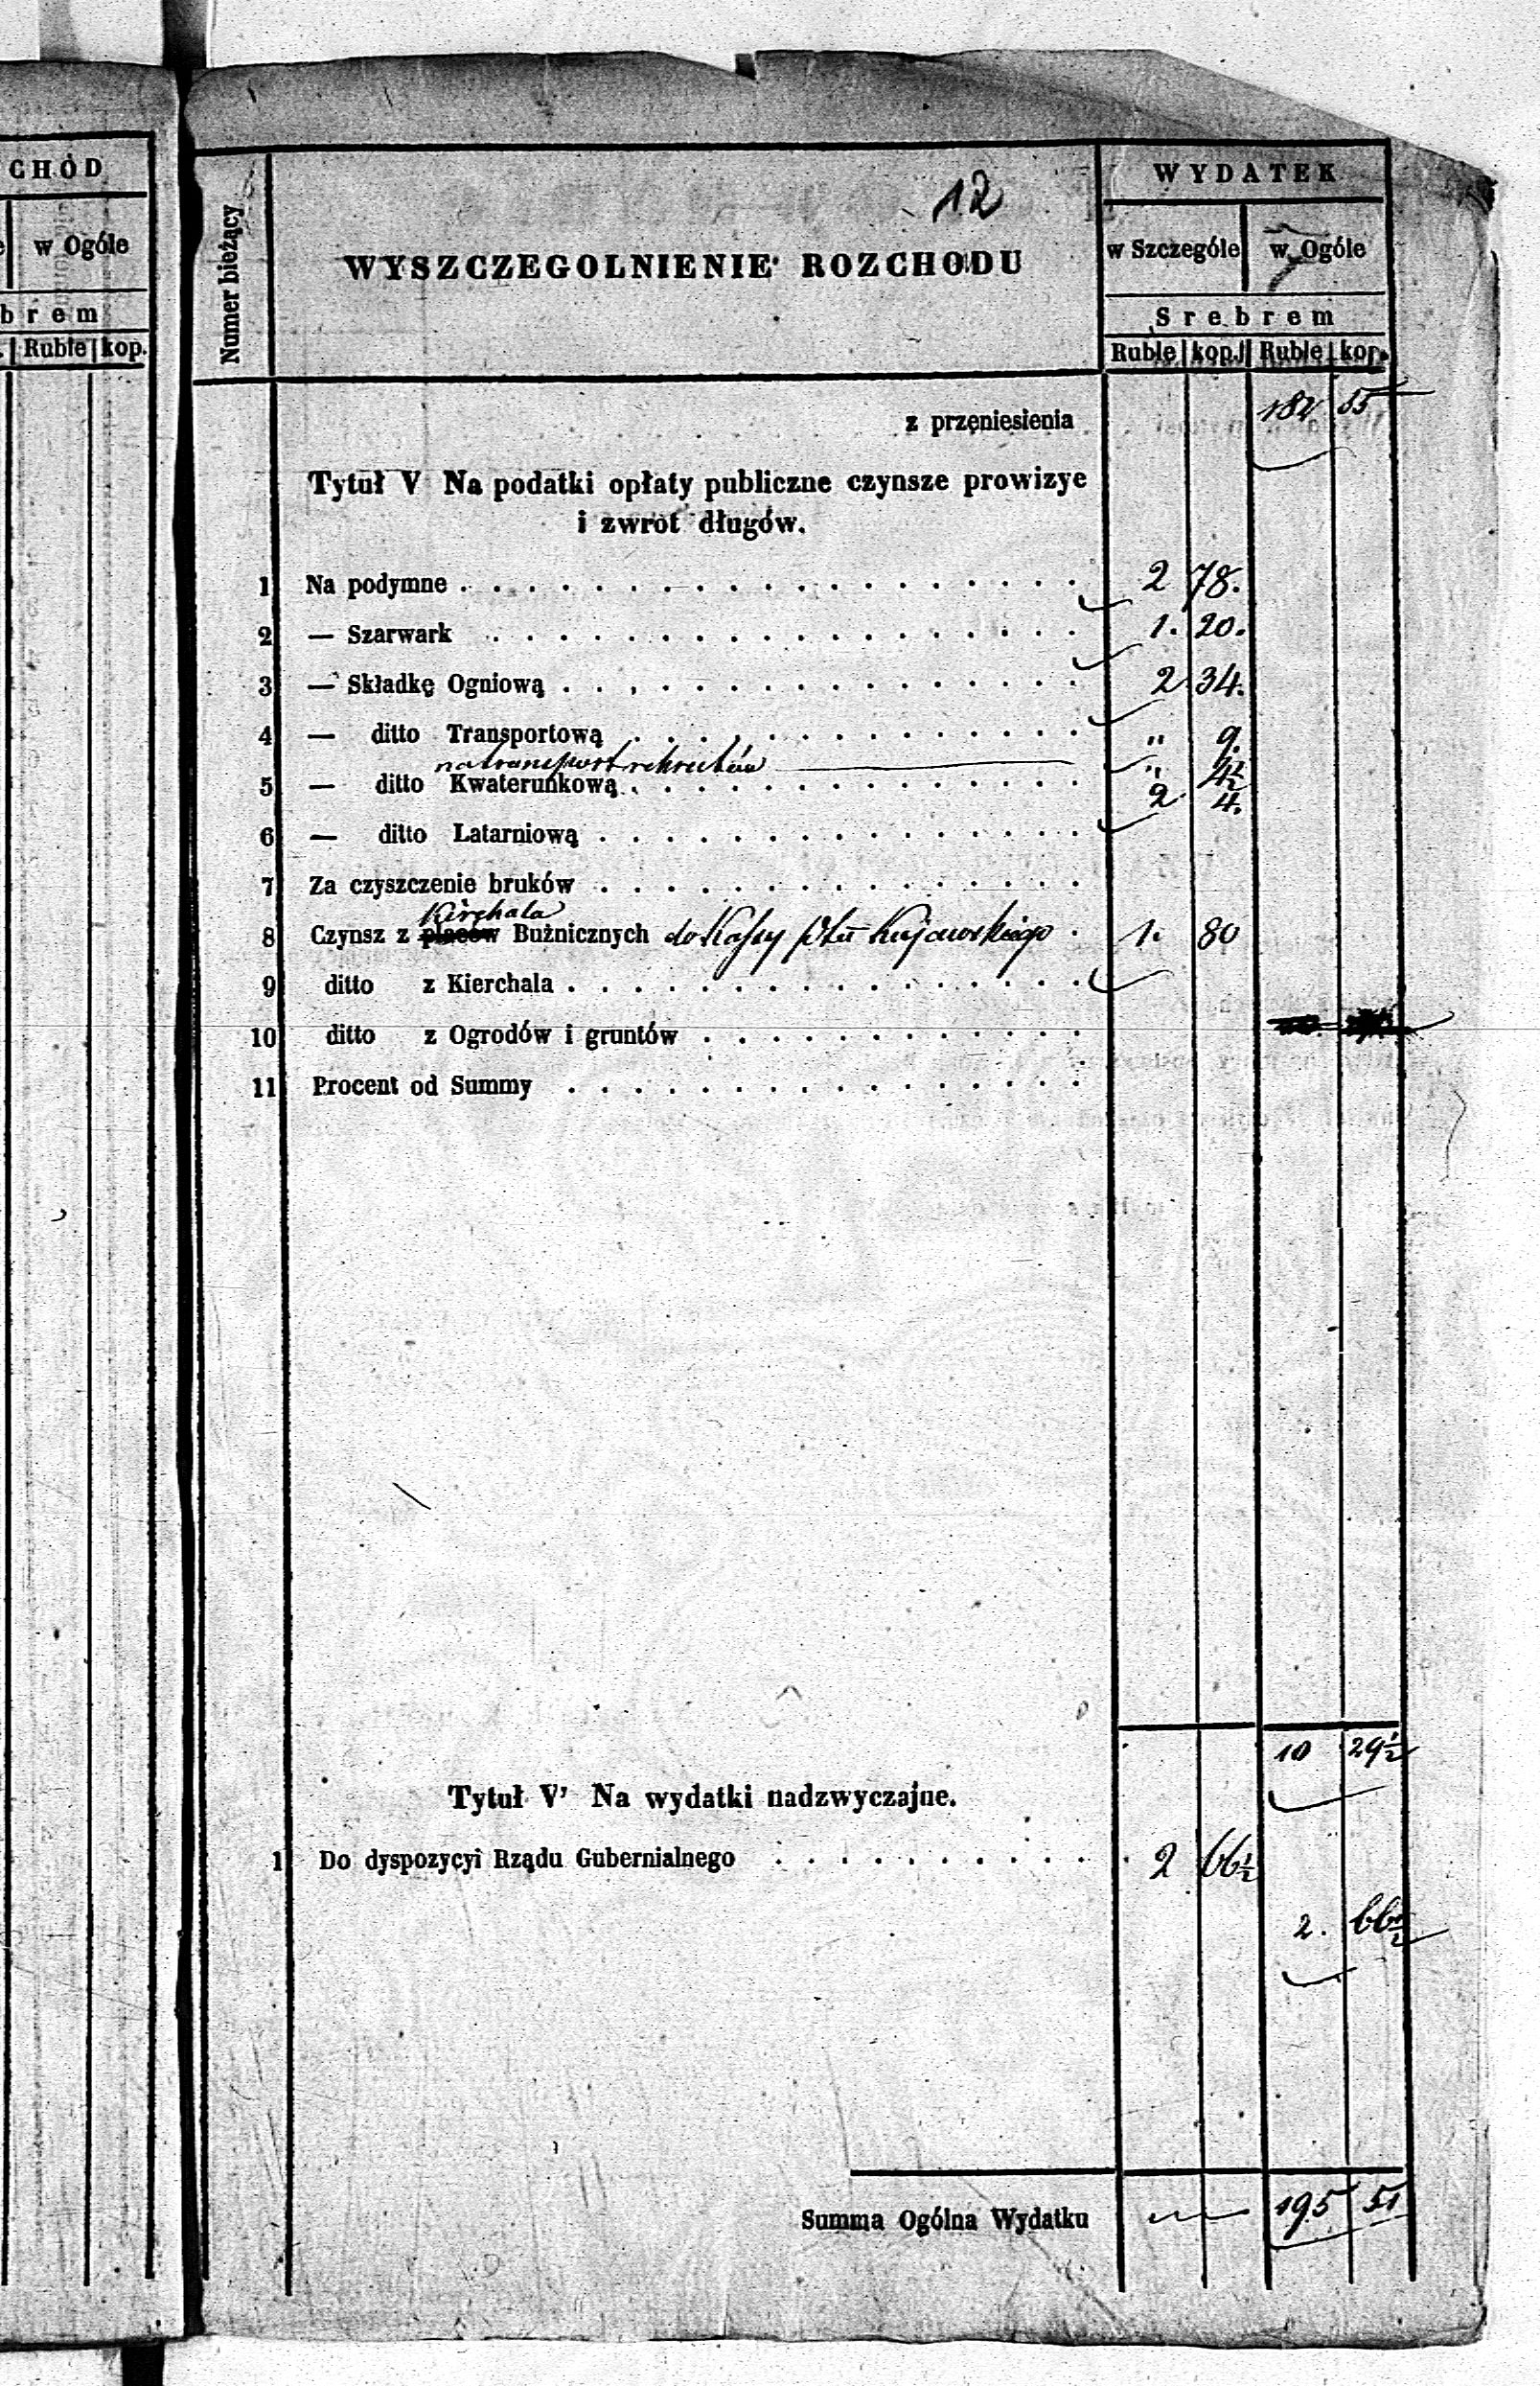 CHÓD
w Ogóle
brem
Ruble kop.
12
Numer bieżący
WYSZCZEGOLNIENIE ROZCHODU
WYDATEK
w Szczególe w Ogóle
Srebrem
Ruble kop. Ruble kop.
z przeniesienia 182 55
Tytuł V Na podatki opłaty publiczne czynsze prowizye
i zwrot długów.
1 Na podymne 2 78.
2 — Szarwark 1. 20.
3 — Składkę Ogniową 2 34.
4 — ditto Transportową " 9.
na transport rekrutów " 4½
5 — ditto Kwaterunkową 2. 4.
6 — ditto Latarniową
7 Za czyszczenie bruków
Kirchala
8 Czynsz z placów Bużnicznych do Kassy Kujawskiego 1. 80
9 ditto z Kierchala
10 ditto z Ogrodów i gruntów
11 Procent od Summy
10 29½
Tytuł V' Na wydatki nadzwyczajne.
1 Do dyspozycyi Rządu Gubernialnego 2 66½
2. 66½
Summa Ogólna Wydatku 195 51